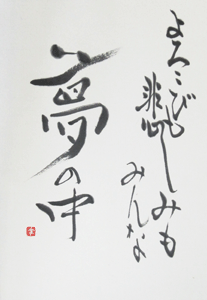 よろこびも
悲しみも
みんな
夢の中